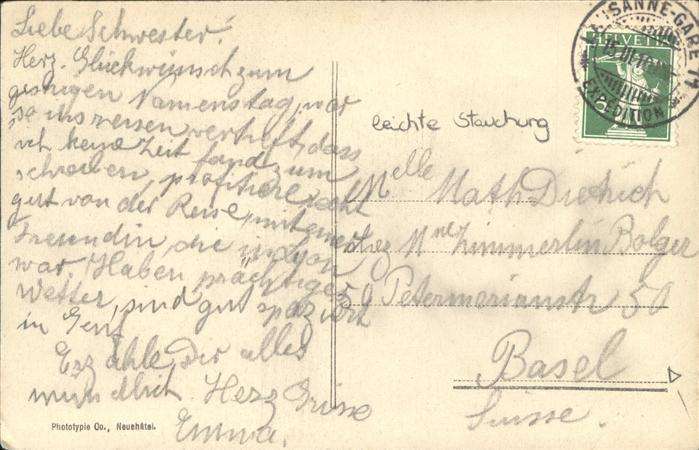 Liebe Schwester!
Herz. Glückwunsch zum
gestrigen Namenstag, war
so ins reisen vertieft, dass
ich keine Zeit fand zum
schreiben, profitiere recht
gut von der Reise, mit einer
Freundin, die in Lyon
war. Haben prächtiges
Wetter, sind gut spaziert
in Genf
Erzähle Dir alles
mündlich. Herz Grüsse
Emma.
Phototypie Co., Neuchâtel.
LAUSANNE-GARE
HELVETIA
EXPEDITION
5
leichte Stauchung
Melle
Math Dietrich
chez Mme Zimmerlin Bolger
50 Petersgrabenstr 50
Basel
Suisse.